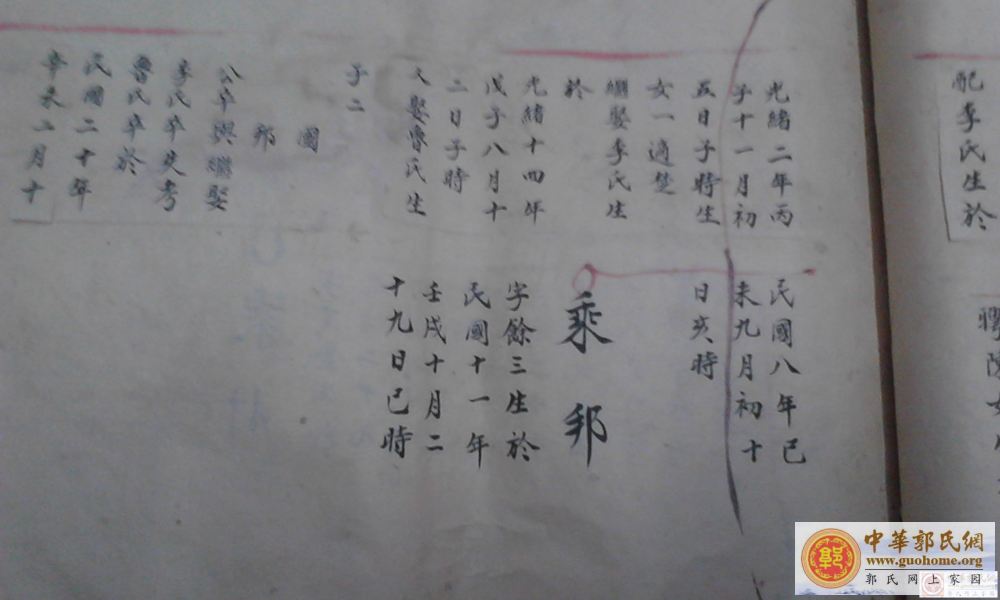 配李氏生於
光緒二年丙
子十一月初
五日子時生
女一適楚
繼娶李氏生
於
光緒十四年
戊子八月十
二日子時
又娶魯氏生
子二
國
邦
公卒與繼娶
李氏卒失考
魯氏卒於
民國二十年
辛未二月十
民國八年己
未九月初十
日亥時
乘邦
字餘三生於
民國十一年
壬戌十月二
十九日巳時
中華郭氏網
www.guohome.org
郭氏网上家园